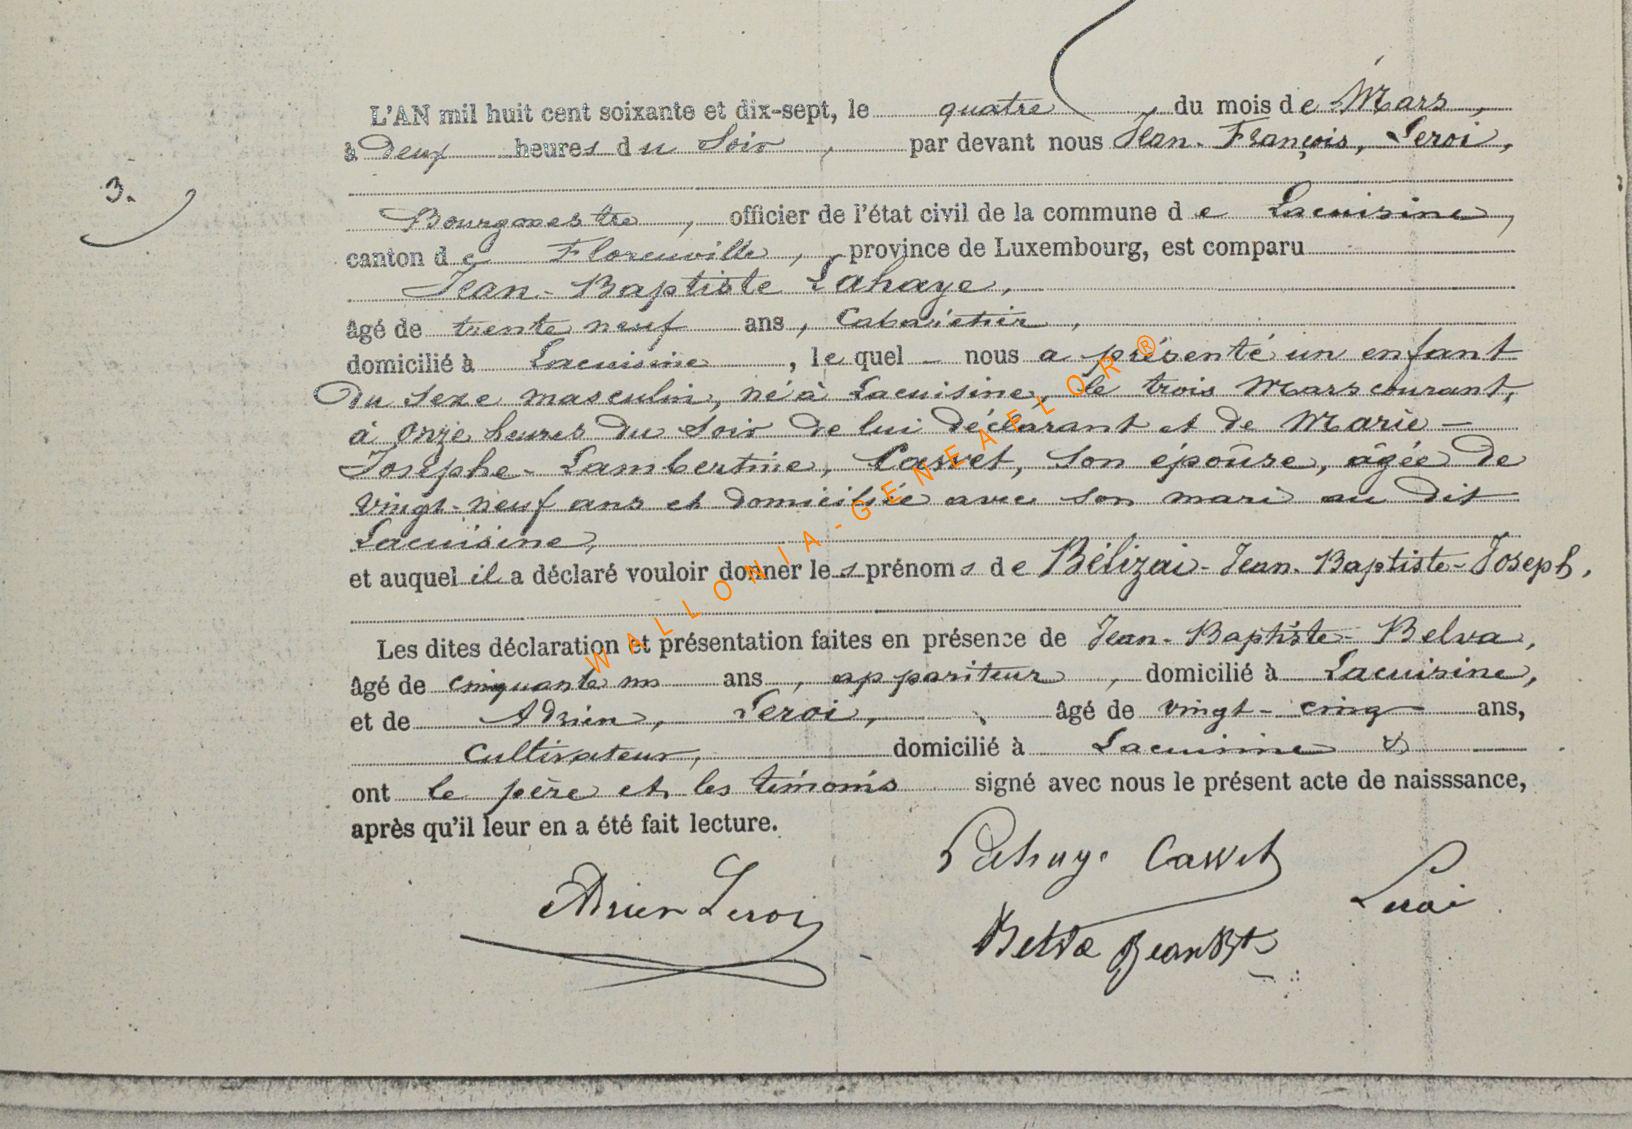 L'AN mil huit cent soixante et dix-sept, le quatre, du mois de Mars,
à deux heures du Soir, par devant nous Jean-François, Leroi,
3.
Bourgmestre, officier de l'état civil de la commune de Lacuisine,
canton de Florenville, province de Luxembourg, est comparu
Jean-Baptiste Lahaye,
âgé de trente neuf ans, Cabaretier,
domicilié à Lacuisine, lequel - nous a présenté un enfant
du sexe masculin, né à Lacuisine, le trois Mars courant,
à onze heures du Soir de lui déclarant et de Marie-
Josèphe-Lambertine, Casvet, son épouse, âgée de
vingt-neuf ans et domiciliée avec son mari au dit
Lacuisine,
et auquel il a déclaré vouloir donner les prénoms de Bélizai-Jean-Baptiste-Joseph,
Les dites déclaration et présentation faites en présence de Jean-Baptiste-Belva,
âgé de cinquante un ans, appariteur, domicilié à Lacuisine,
et de Adrien, Leroi, âgé de vingt-cinq ans,
Cultivateur, domicilié à Lacuisine &
ont le père et les témoins signé avec nous le présent acte de naisssance,
après qu'il leur en a été fait lecture.
Lahaye Casvet
Adrien Leroi
Leroi
Belva Jean Bte
WALLONIA-GENEAFLOR®